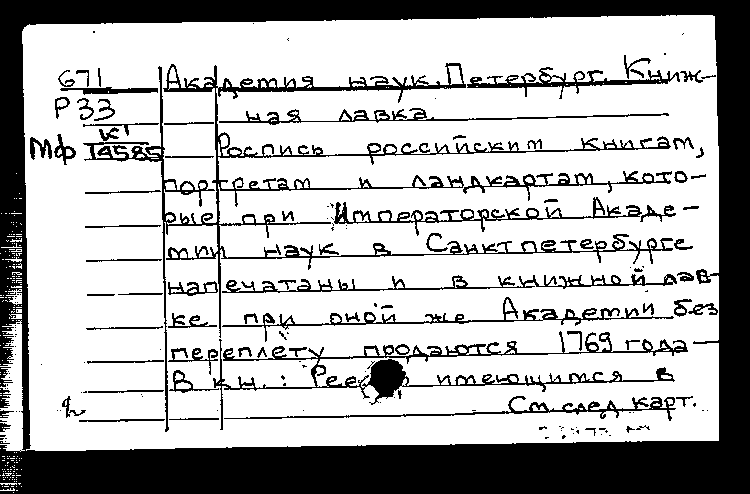 671 Академия наук. Петербург. Книж-
Р33 ная лавка.
К1
Мф 14585 Роспись российским книгам,
портретам и ландкартам, кото-
рые при Императорской Акаде-
мии наук в Санктпетербурге
напечатаны и в книжной лав-
ке при оной же Академии без
переплёту продаются 1769 года —
В кн.: имеющимся в
См. след. карт.